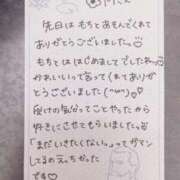 先日はもちとあそんでくれて
ありがとうございました。
もちとははじめましてでしたねっ
かわいいって言ってくれてあり
がとうございました(^^)
受けの気かってことやったから
好きにさせてもらいました。
「まだいきたくない」ってガマン
してるのえっちかった
です♡